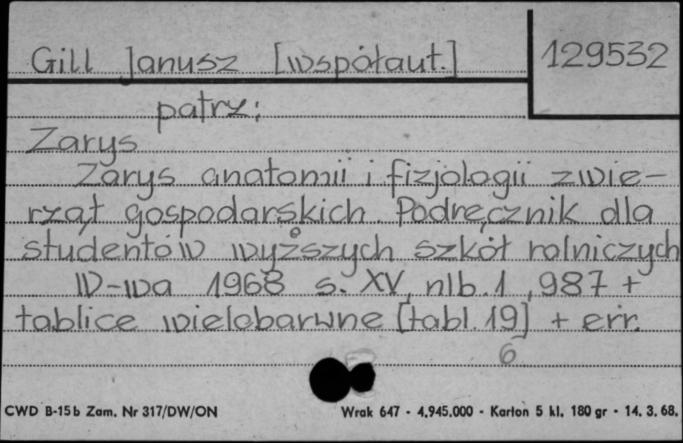 Gill Janusz [współaut.] 129532
patrz:
Zarys
Zarys anatomii i fizjologii zwie-
rząt gospodarskich. Podręcznik dla
studentów wyższych szkół rolniczych
W-wa 1968 s. XV, nlb. 1, 987 +
tablice wielobarwne [tabl. 19] + err.
6
CWD B-15b Zam. Nr 317/DW/ON Wrak 647 - 4.945.000 - Karton 5 kl. 180 gr - 14. 3. 68.